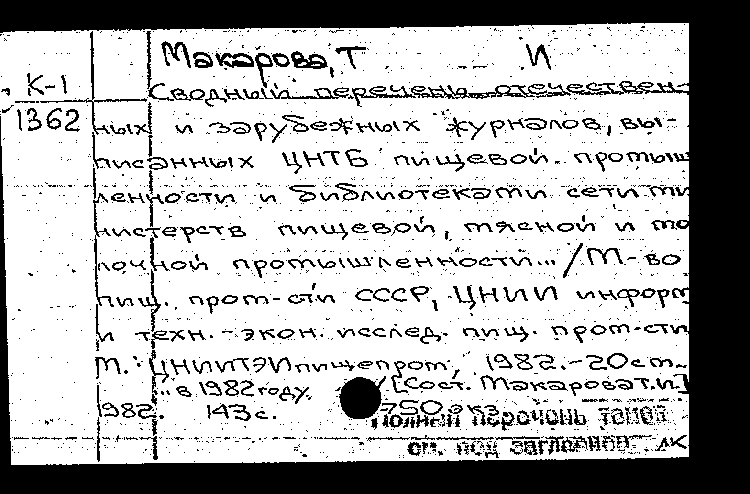 Макарова, Т И
К-1
Сводный перечень отечествен-
1362
ных и зарубежных журналов, вы-
писанных ЦНТБ пищевой. промыш
ленности и библиотеками сети ми
нистерств пищевой, мясной и мо
лочной промышленности... / М-во
пищ. пром-сти СССР, ЦНИИ информ
и техн.-экон. исслед. пищ. пром-сти
М.: ЦНИИТЭИпищепром, 1982.-20см.
... в 1982 году. / [Сост. Макарова Т.И.]
1982. 143 с. 750 экз
Полный перечень томов
см. под заглавием.